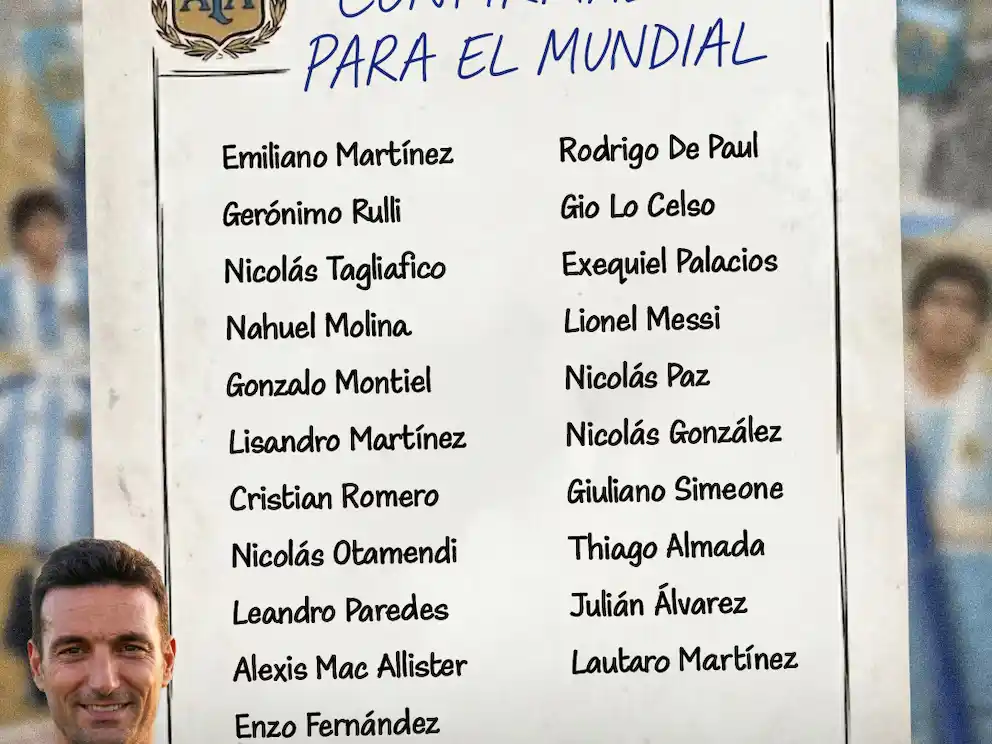 AFA
PARA EL MUNDIAL
Emiliano Martínez
Gerónimo Rulli
Nicolás Tagliafico
Nahuel Molina
Gonzalo Montiel
Lisandro Martínez
Cristian Romero
Nicolás Otamendi
Leandro Paredes
Alexis Mac Allister
Enzo Fernández
Rodrigo De Paul
Gio Lo Celso
Exequiel Palacios
Lionel Messi
Nicolás Paz
Nicolás González
Giuliano Simeone
Thiago Almada
Julián Álvarez
Lautaro Martínez